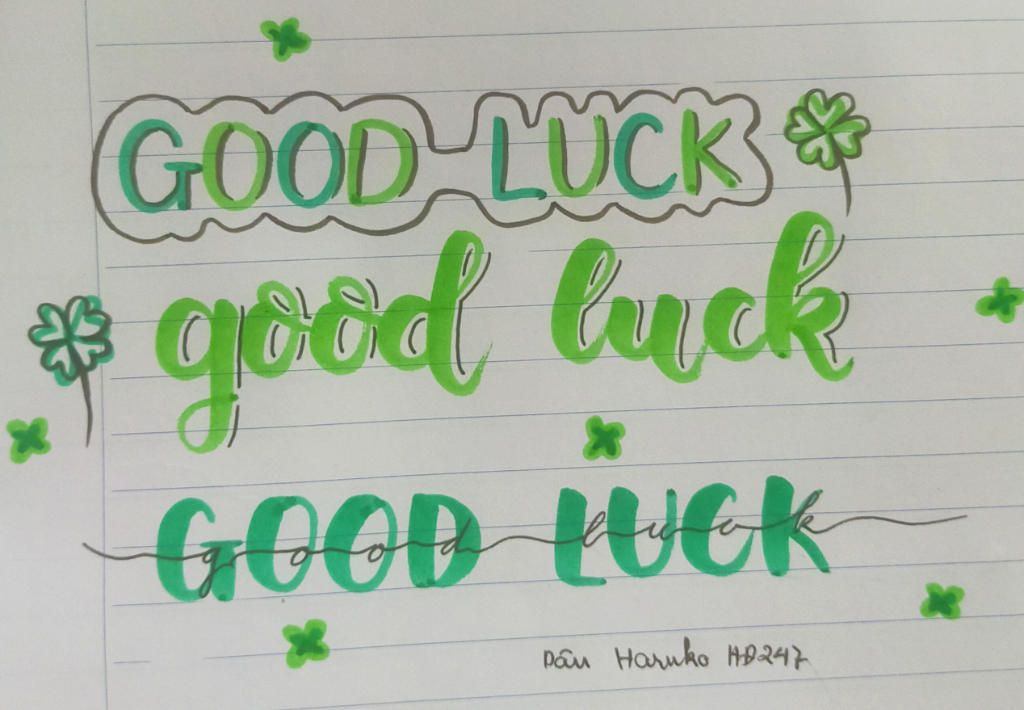 GOOD LUCK
good luck
GOOD LUCK
good luck
Dâu Haruko HD247